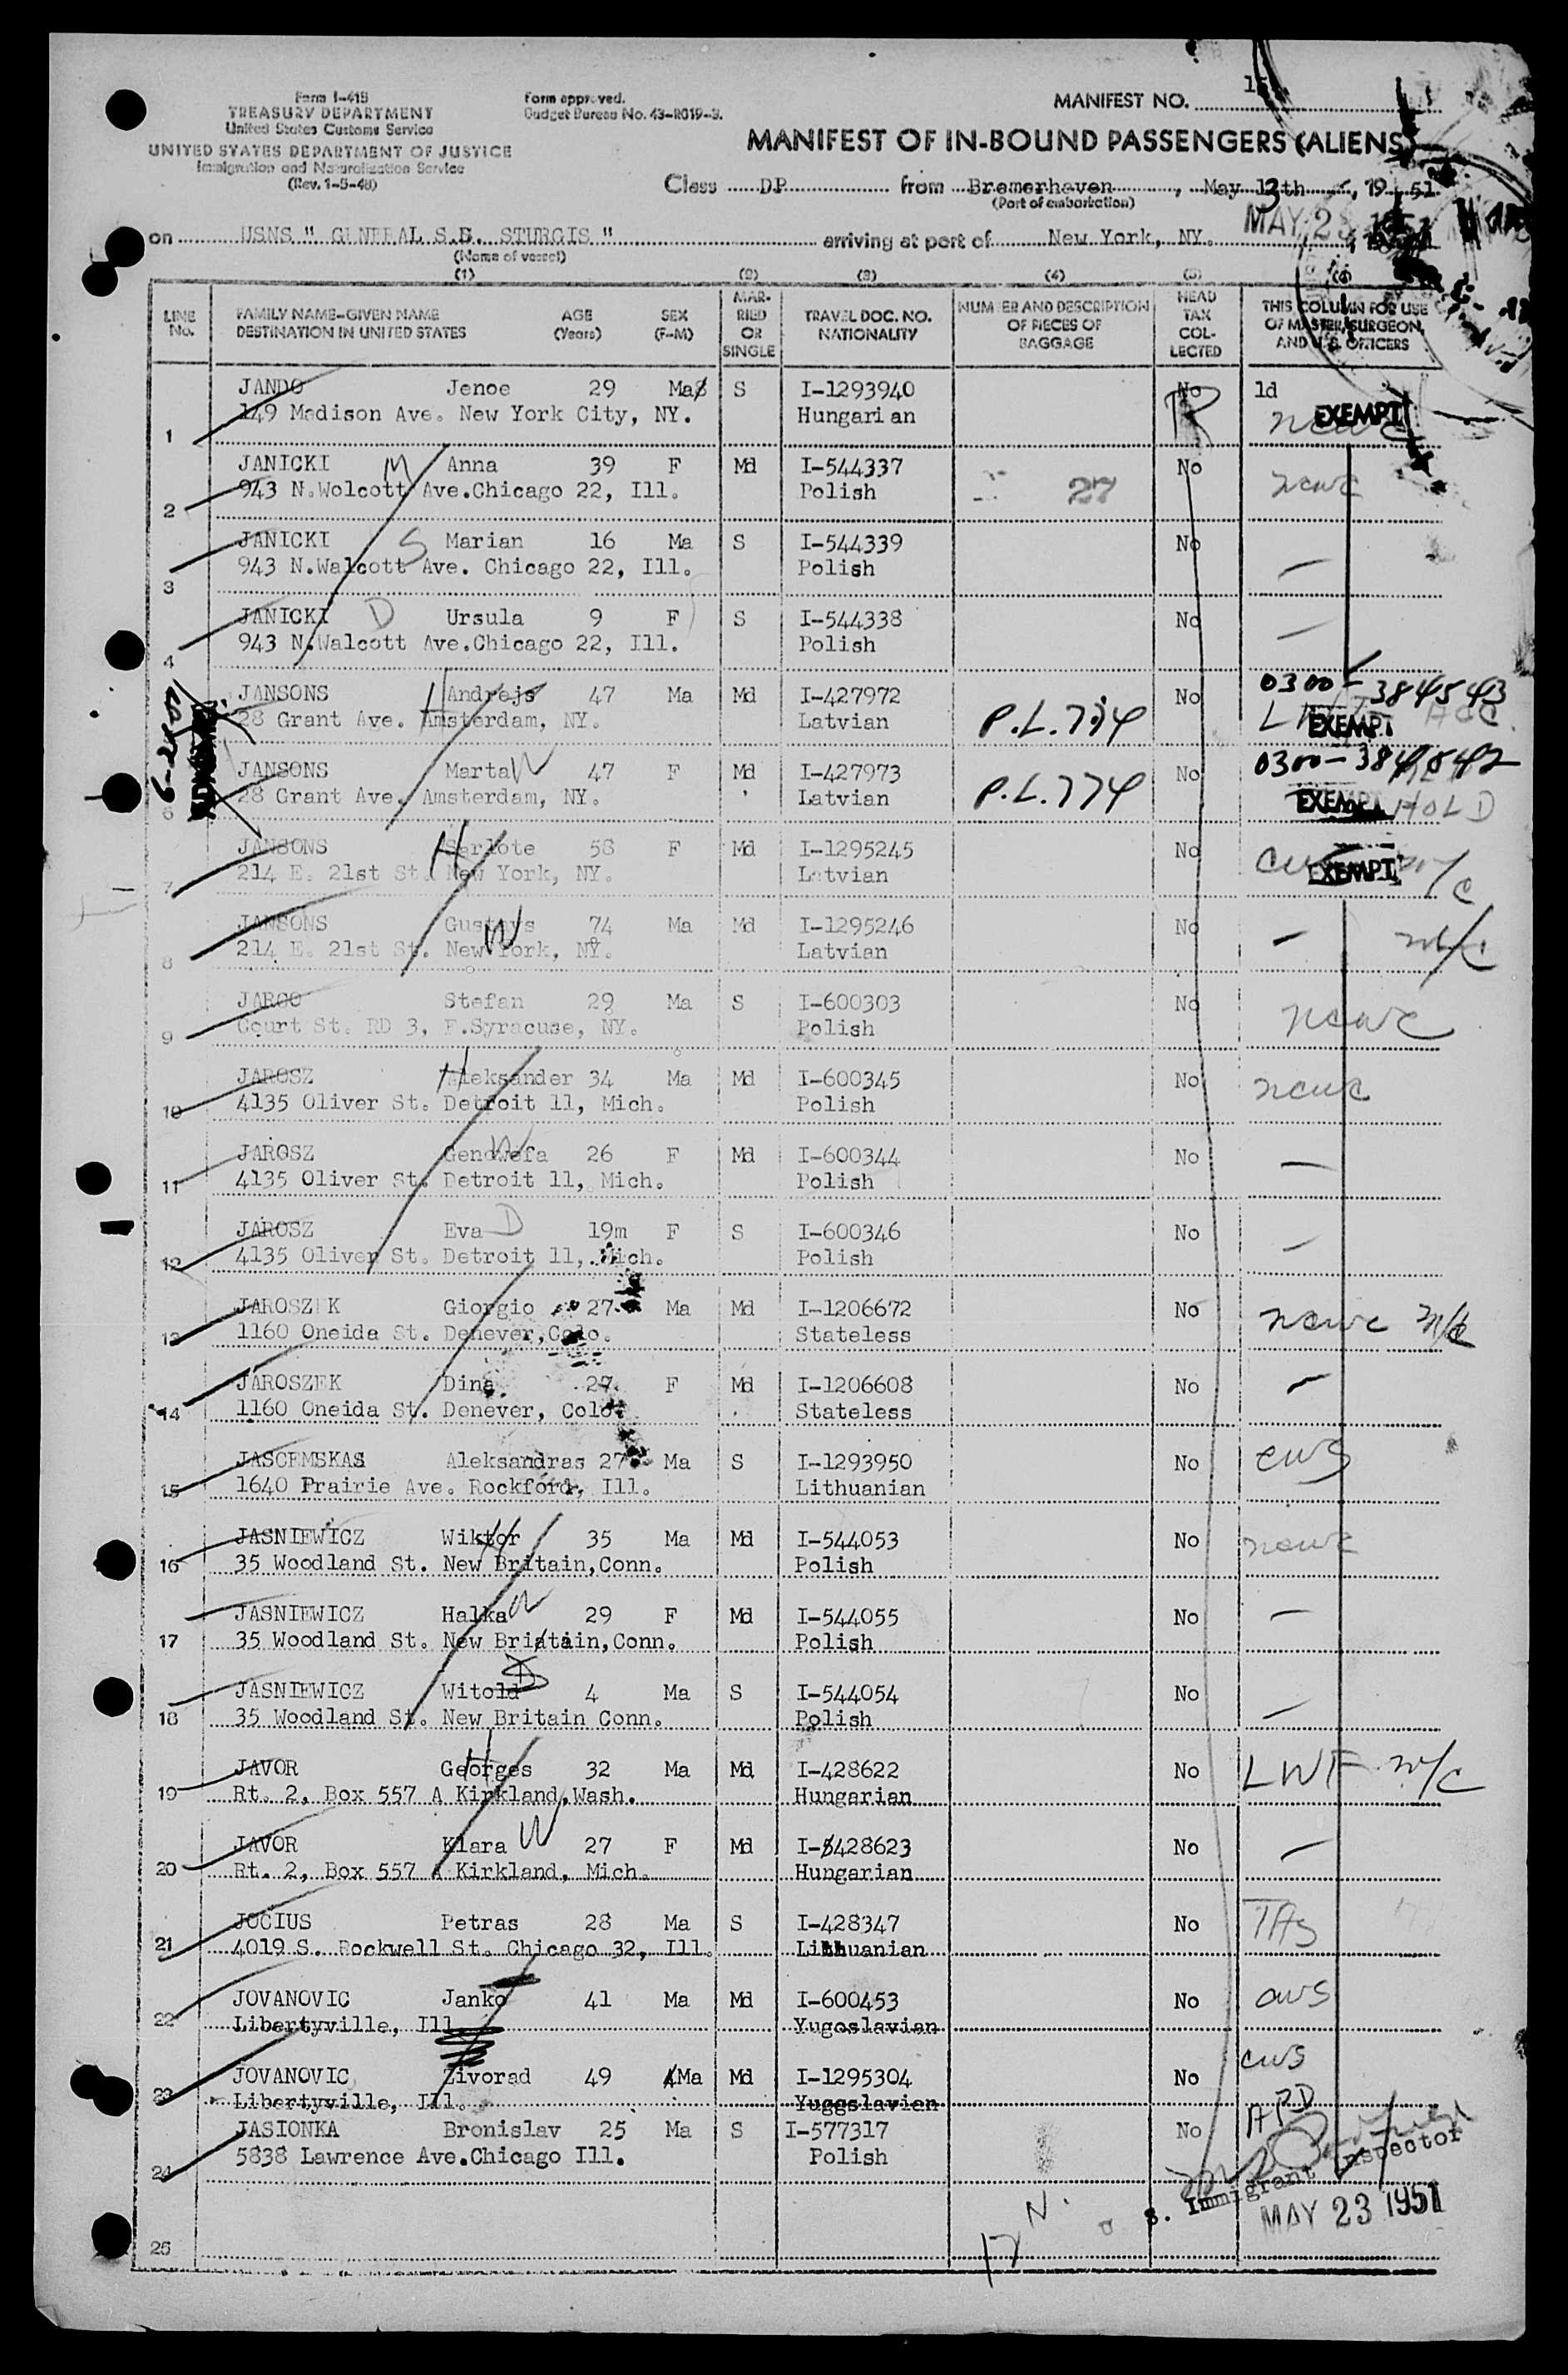 Form I-418
TREASURY DEPARTMENT
United States Customs Service
UNITED STATES DEPARTMENT OF JUSTICE
Immigration and Naturalization Service
(Rev. 1-5-48)
Form approved.
Budget Bureau No. 43-R019-3.
MANIFEST NO.
MANIFEST OF IN-BOUND PASSENGERS (ALIENS)
Class DP from Bremerhaven, May 13th, 1951
(Port of embarkation)
on USNS " GENERAL S.D. STURGIS " arriving at port of New York, NY. MAY 23 1951
(Name of vessel)
(1) (2) (3) (4) (5) (6)
LINE No. FAMILY NAME-GIVEN NAME DESTINATION IN UNITED STATES AGE (Years) SEX (F-M) MARRIED OR SINGLE TRAVEL DOC. NO. NATIONALITY NUMBER AND DESCRIPTION OF PIECES OF BAGGAGE HEAD TAX COLLECTED THIS COLUMN FOR USE OF MASTER, SURGEON, AND U.S. OFFICERS
JANDO Jenoe 29 Ma S I-1293940 No 1d
1 149 Madison Ave. New York City, NY. Hungarian ncwc EXEMPT
JANICKI W Anna 39 F Md I-544337 No ncwc
2 943 N.Wolcott Ave.Chicago 22, Ill. Polish 27
JANICKI S Marian 16 Ma S I-544339 No
3 943 N.Walcott Ave. Chicago 22, Ill. Polish —
JANICKI D Ursula 9 F S I-544338 No
4 943 N.Walcott Ave.Chicago 22, Ill. Polish —
JANSONS H Andrejs 47 Ma Md I-427972 No 0300-384543
28 Grant Ave. Amsterdam, NY. Latvian P.L. 774 EXEMPT
JANSONS Marta W 47 F Md I-427973 No 0300-384542
6 28 Grant Ave. Amsterdam, NY. Latvian P.L. 774 EXEMPT HOLD
JANSONS H Sarlote 58 F Md I-1295245 No cws EXEMPT
7 214 E. 21st St. New York, NY. Latvian
JANSONS Gustavs 74 Ma Md I-1295246 No — n/c
8 214 E. 21st St. New York, NY. W Latvian
JARCO Stefan 29 Ma S I-600303 No ncwc
9 Court St. RD 3, E.Syracuse, NY. Polish
JAROSZ H Aleksander 34 Ma Md I-600345 No ncwc
10 4135 Oliver St. Detroit 11, Mich. Polish
JAROSZ Genowefa W 26 F Md I-600344 No —
11 4135 Oliver St. Detroit 11, Mich. Polish
JAROSZ Eva D 19m F S I-600346 No —
12 4135 Oliver St. Detroit 11, Mich. Polish
JAROSZEK Giorgio 27 Ma Md I-1206672 No ncwc n/c
13 1160 Oneida St. Denever,Colo. Stateless
JAROSZEK Dina 27 F Md I-1206608 No —
14 1160 Oneida St. Denever, Colo. Stateless
JASCEMSKAS Aleksandras 27 Ma S I-1293950 No cws
15 1640 Prairie Ave. Rockford, Ill. Lithuanian
JASNIEWICZ Wiktor H 35 Ma Md I-544053 No ncwc
16 35 Woodland St. New Britain,Conn. Polish
JASNIEWICZ Halka W 29 F Md I-544055 No —
17 35 Woodland St. New Britain,Conn. Polish
JASNIEWICZ Witold 4 Ma S I-544054 No —
18 35 Woodland St. New Britain Conn. Polish
JAVOR Georges H 32 Ma Md I-428622 No LWF n/c
19 Rt. 2, Box 557 A Kirkland,Wash. Hungarian
JAVOR Klara W 27 F Md I-428623 No —
20 Rt. 2, Box 557 A Kirkland, Mich. Hungarian
JOCIUS Petras 28 Ma S I-428347 No
21 4019 S. Rockwell St. Chicago 32, Ill. Lithuanian
JOVANOVIC Janko 41 Ma Md I-600453 No cws
22 Libertyville, Ill Yugoslavian
JOVANOVIC Zivorad 49 Ma Md I-1295304 No cws
23 Libertyville, Ill. Yugoslavian
JASIONKA Bronislav 25 Ma S I-577317 No
24 5838 Lawrence Ave.Chicago Ill. Polish
S. Immigrant Inspector
MAY 23 1951
25